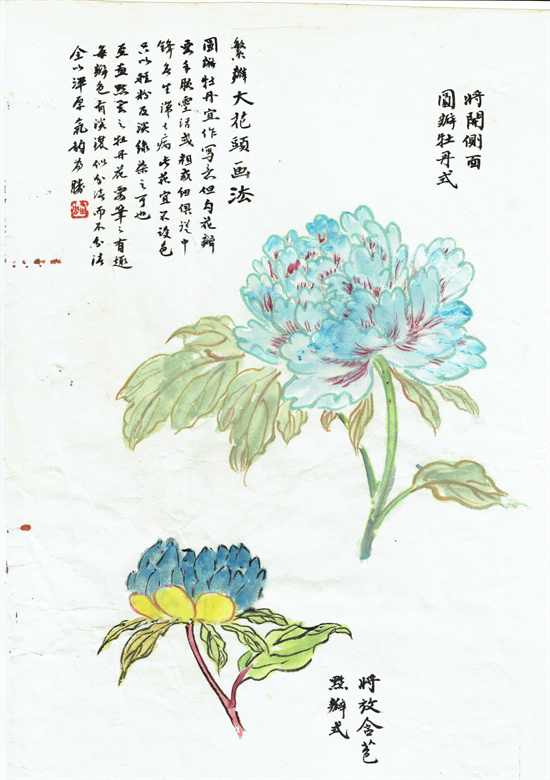 將開側面
圓瓣牡丹式
繁瓣大花頭画法
圓瓣牡丹宜作寫之但勾花瓣
要手腕靈活或粗或細俱從中
鋒
生渾
病
此花宜不設色
只以脂粉及淡綠染之可也
至
點
之牡丹花要筆之有趣
每瓣色有淡濃似分法而不分法
全以渾厚氣韵為勝
將放含苞
點瓣式